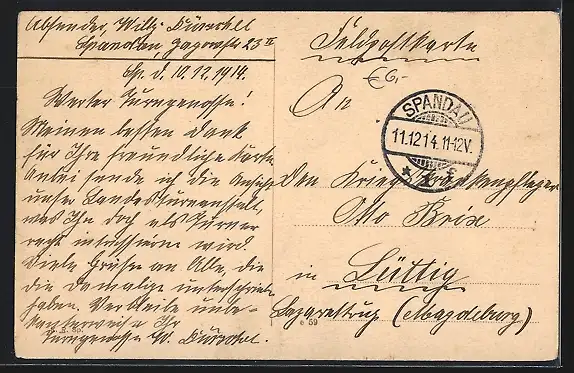 Absender, Willi Dürschel
Spandau, Jagowstr 23 II
Sp. d. 10.12.1914.
Werter Turngenosse!
Meinen besten Dank
für Ihre freundliche Karte
Anbei sende ich die Ansicht
unser Landesturnanstalt,
was Ihn doch als Turner
recht interessieren wird.
Viele Grüße an Alle, die
die Damalige unterschrieben
haben. Verbleibe unbe-
kannterweise Ihr
Turngenosse W. Dürschel.
Feldpostkarte
€ 6,-
An
SPANDAU
11.12.14.11-12V.
* 1 f
den Kriegskrankenpfleger
Otto Brix
in Lüttig
Lazarettrup (Magdeburg)
e 59